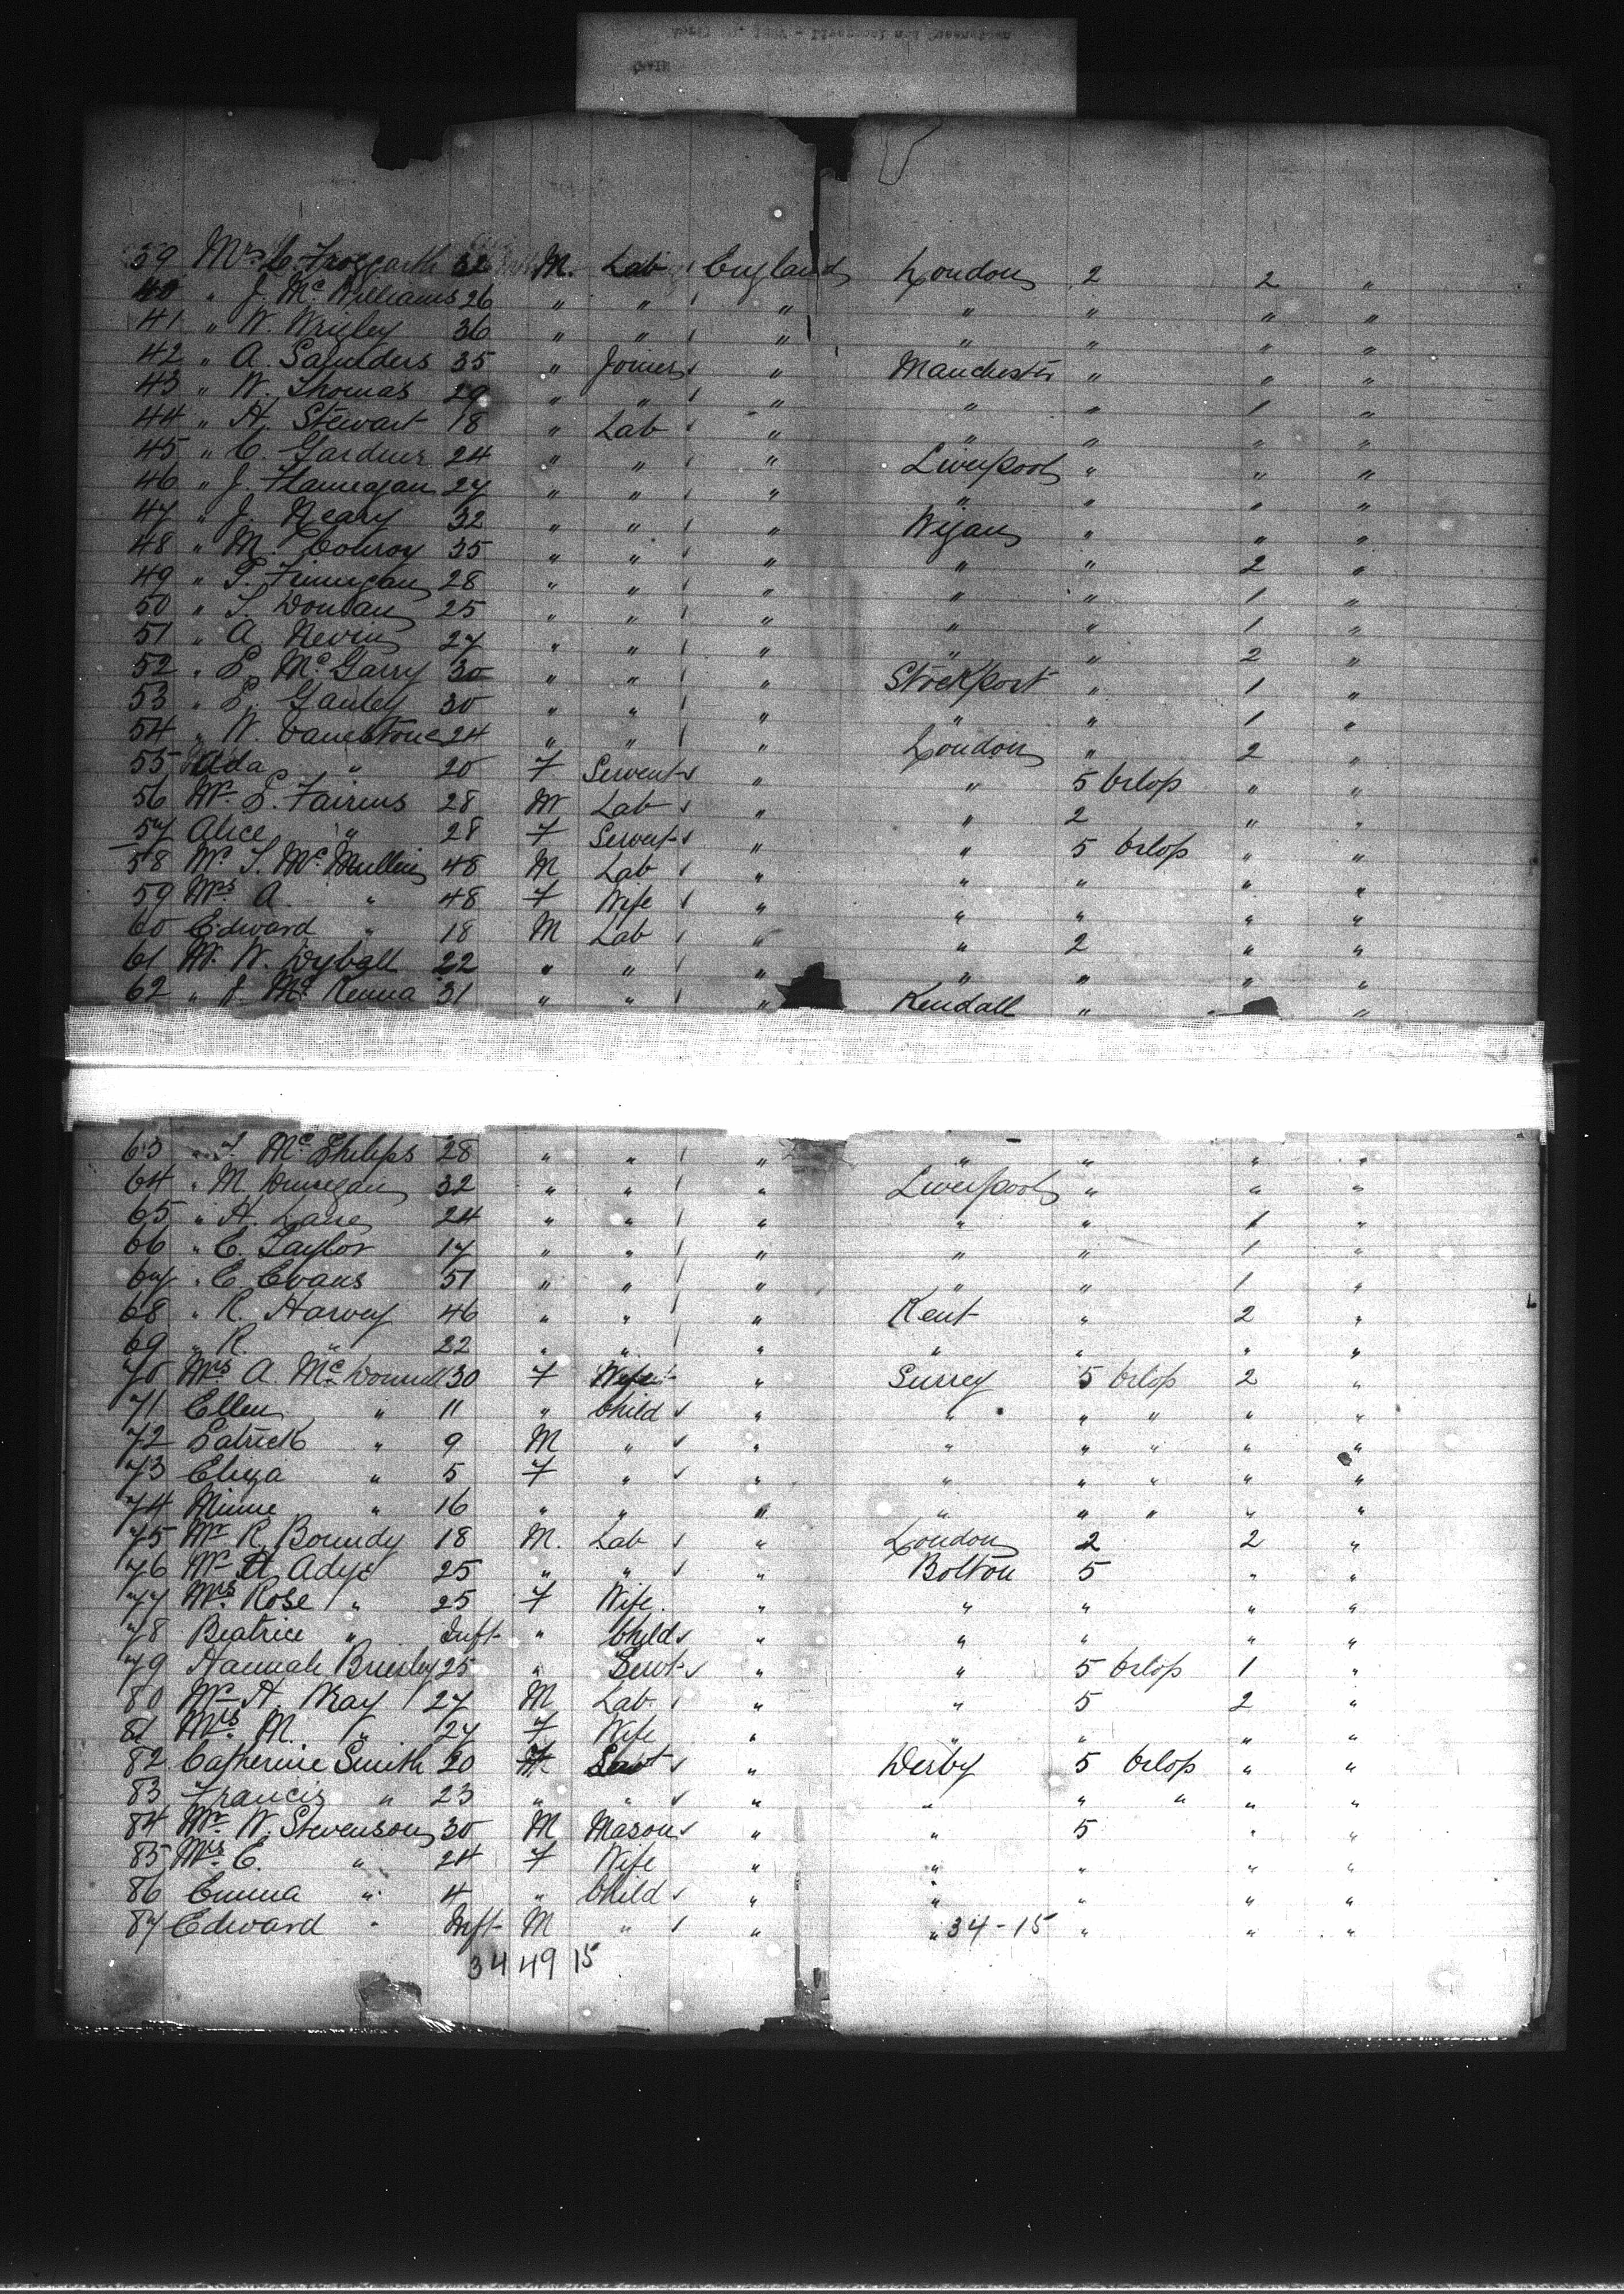 59 Mr C. Froggarth 32 M. Lab England London 2 2 "
40 " J. Mc Williams 26 " " " " " " "
41 " W. Wrigley 36 " " " " " " "
42 " A. Saunders 35 " Joiner " Manchester " " "
43 " W. Thomas 29 " " " " " 1 "
44 " H. Stewart 18 " Lab " " " " "
45 " C. Gardner 24 " " " Liverpool " " "
46 " J. Flannagan 27 " " " " " " "
47 " J. Neary 32 " " " Wigan " " "
48 " M. Conroy 35 " " " " " 2 "
49 " P. Finnegan 28 " " " " " 1 "
50 " T. Donlan 25 " " " " " 1 "
51 " A. Nevin 27 " " " " " 2 "
52 " P. Mc Garry 30 " " " Stockport " 1 "
53 " P. Gauley 30 " " " " " 1 "
54 " W. 24 " " " London " 2 "
55 Ada " 20 F Servent " " 5 Orlop " "
56 Mr. 28 M Lab " " 2 " "
57 Alice " 28 F Servent " " 5 Orlop " "
58 Mr. T. Mc Mullin 48 M Lab " " " " "
59 Mrs A. " 48 F Wife " " " " "
60 Edward " 18 M Lab " " 2 " "
61 Mr. W. Dyball 22 " " " " " " "
62 " J. Mc Kenna 31 " " " Kendall " "
63 " Mc Philips 28 " " " " " " "
64 " M. Dunegan 32 " " " Liverpool " " "
65 " H. Lane 24 " " " " " 1 "
66 " C. Taylor 17 " " " " " 1 "
67 " C. Evans 51 " " " " " 1 "
68 " R. Harvey 46 " " " Kent " 2 "
69 " R. " 22 " " " " " " "
70 Mrs A. Mc Donnell 30 F " Surrey 5 Orlop 2 "
71 Ellen " 11 " Child " " " " " "
72 Patrick " 9 M " " " " " " "
73 Eliza " 5 F " " " " " " "
74 Minnie " 16 " " " " " " " "
75 Mr R. Boundy 18 M. Lab " London 2 2 "
76 Mr A. Adye 25 " " " Bolton 5 " "
77 Mrs Rose " 25 F Wife. " " " " "
78 Beatrice " Inft " Child " " " " "
79 Hannah Brierley 25 " Servt " " 5 Orlop 1 "
80 Mr H. Wray 27 M Lab. " " 5 2 "
81 Mrs M. " 27 F Wife " " " " "
82 Catherine Smith 20 F " Derby 5 Orlop " "
83 Francis " 23 " " " " " " " "
84 Mr. W. Stevenson 30 M Mason " " 5 " "
85 Mrs. E. " 24 F Wife " " " " "
86 Emma " 4 " Child " " " " "
87 Edward " Inft M " " " 34-15 " " "
34 49 15